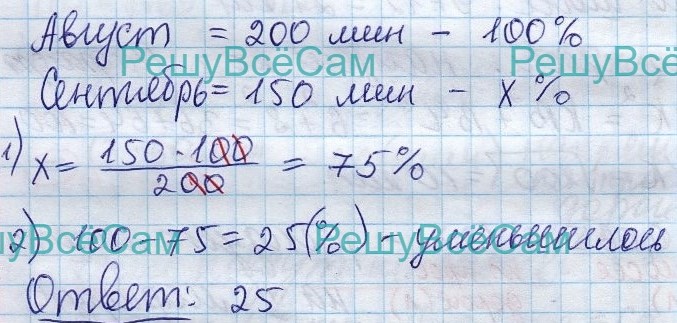 Август = 200 мин - 100%
РешуВсёСам РешуВсё
Сентябрь = 150 мин - х%
1) х = 150 · 100 / 200 = 75%
2) 100 - 75 = 25(%) - уменьшилось
уВсёСам РешуВсёСам
Ответ: 25